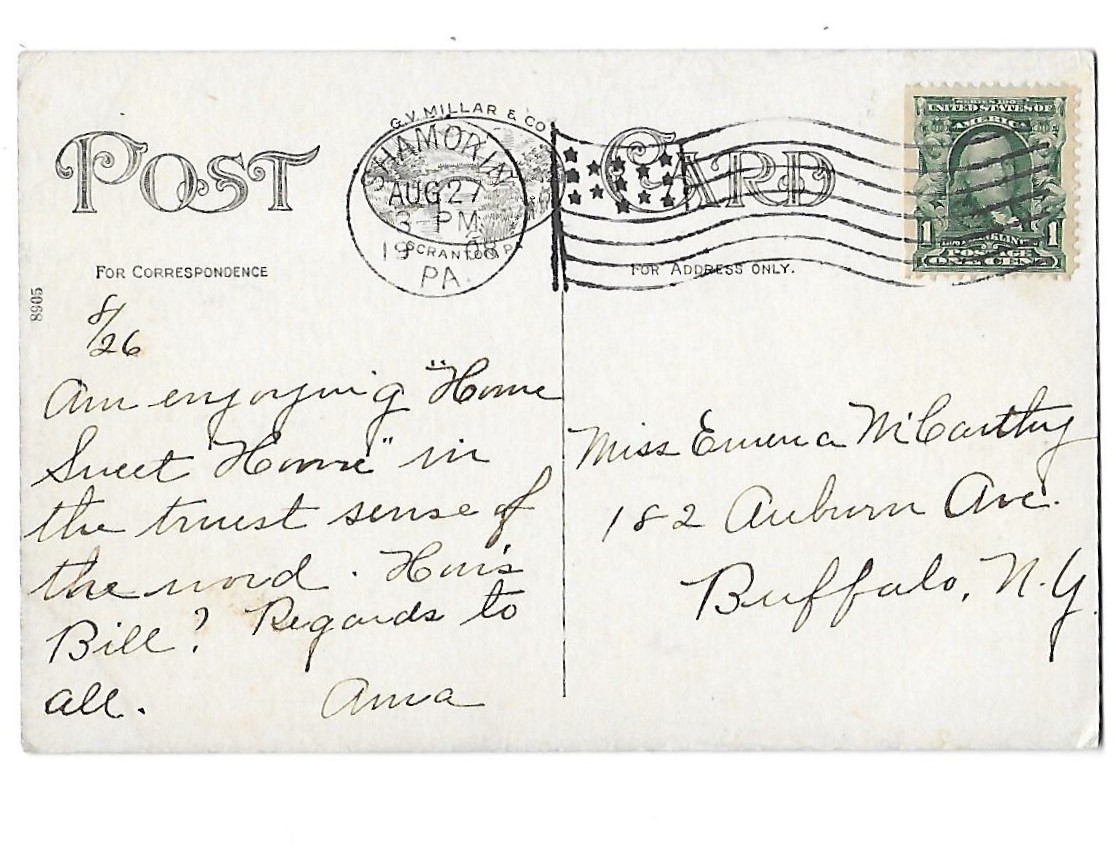 POST CARD
G.V. MILLAR & CO.
SCRANTON, PA
SHAMOKIN
AUG 27
3 PM
1908
PA.
SERIES 1902
UNITED STATES OF
AMERICA
1 1
POSTAGE
ONE CENT
FOR CORRESPONDENCE
FOR ADDRESS ONLY.
8905
8/26
Am enjoying "Home
Sweet Home" in
the truest sense of
the word. How's
Bill? Regards to
all. Anna
Miss Emma McCarthy
182 Auburn Ave.
Buffalo, N.Y.